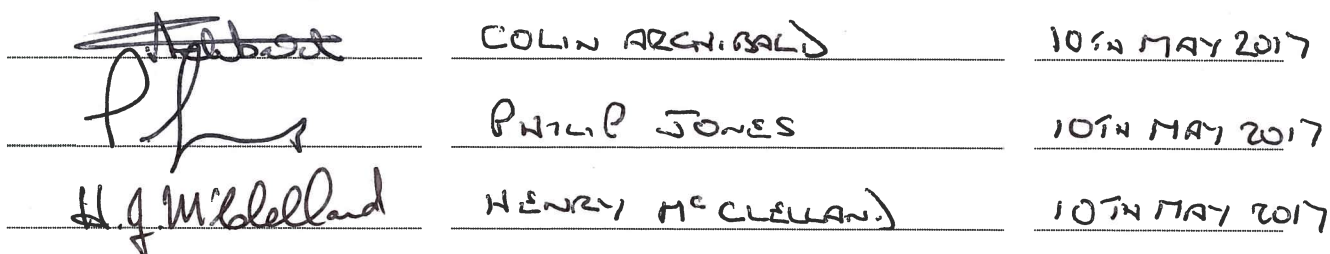 COLIN ARCHIBALD 10TH MAY 2017
PHILIP JONES 10TH MAY 2017
H.J. McClelland HENRY McCLELLAND 10TH MAY 2017